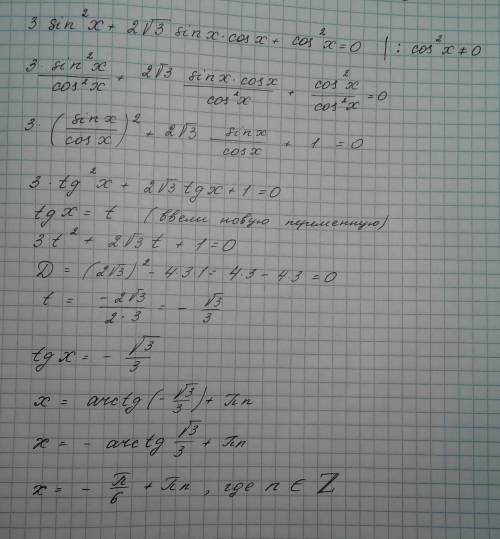 3 sin²x + 2√3 sinx·cosx + cos²x = 0 | : cos²x ≠ 0
3·sin²x/cos²x + 2√3 sinx·cosx/cos²x + cos²x/cos²x = 0
3·(sinx/cosx)² + 2√3 sinx/cosx + 1 = 0
3·tg²x + 2√3 tgx + 1 = 0
tgx = t (ввели новую переменную)
3t² + 2√3 t + 1 = 0
D = (2√3)² − 4·3·1 = 4·3 − 4·3 = 0
t = −2√3/2·3 = − √3/3
tgx = − √3/3
x = arctg(−√3/3) + πn
x = − arctg √3/3 + πn
x = − π/6 + πn, где n ∈ Z